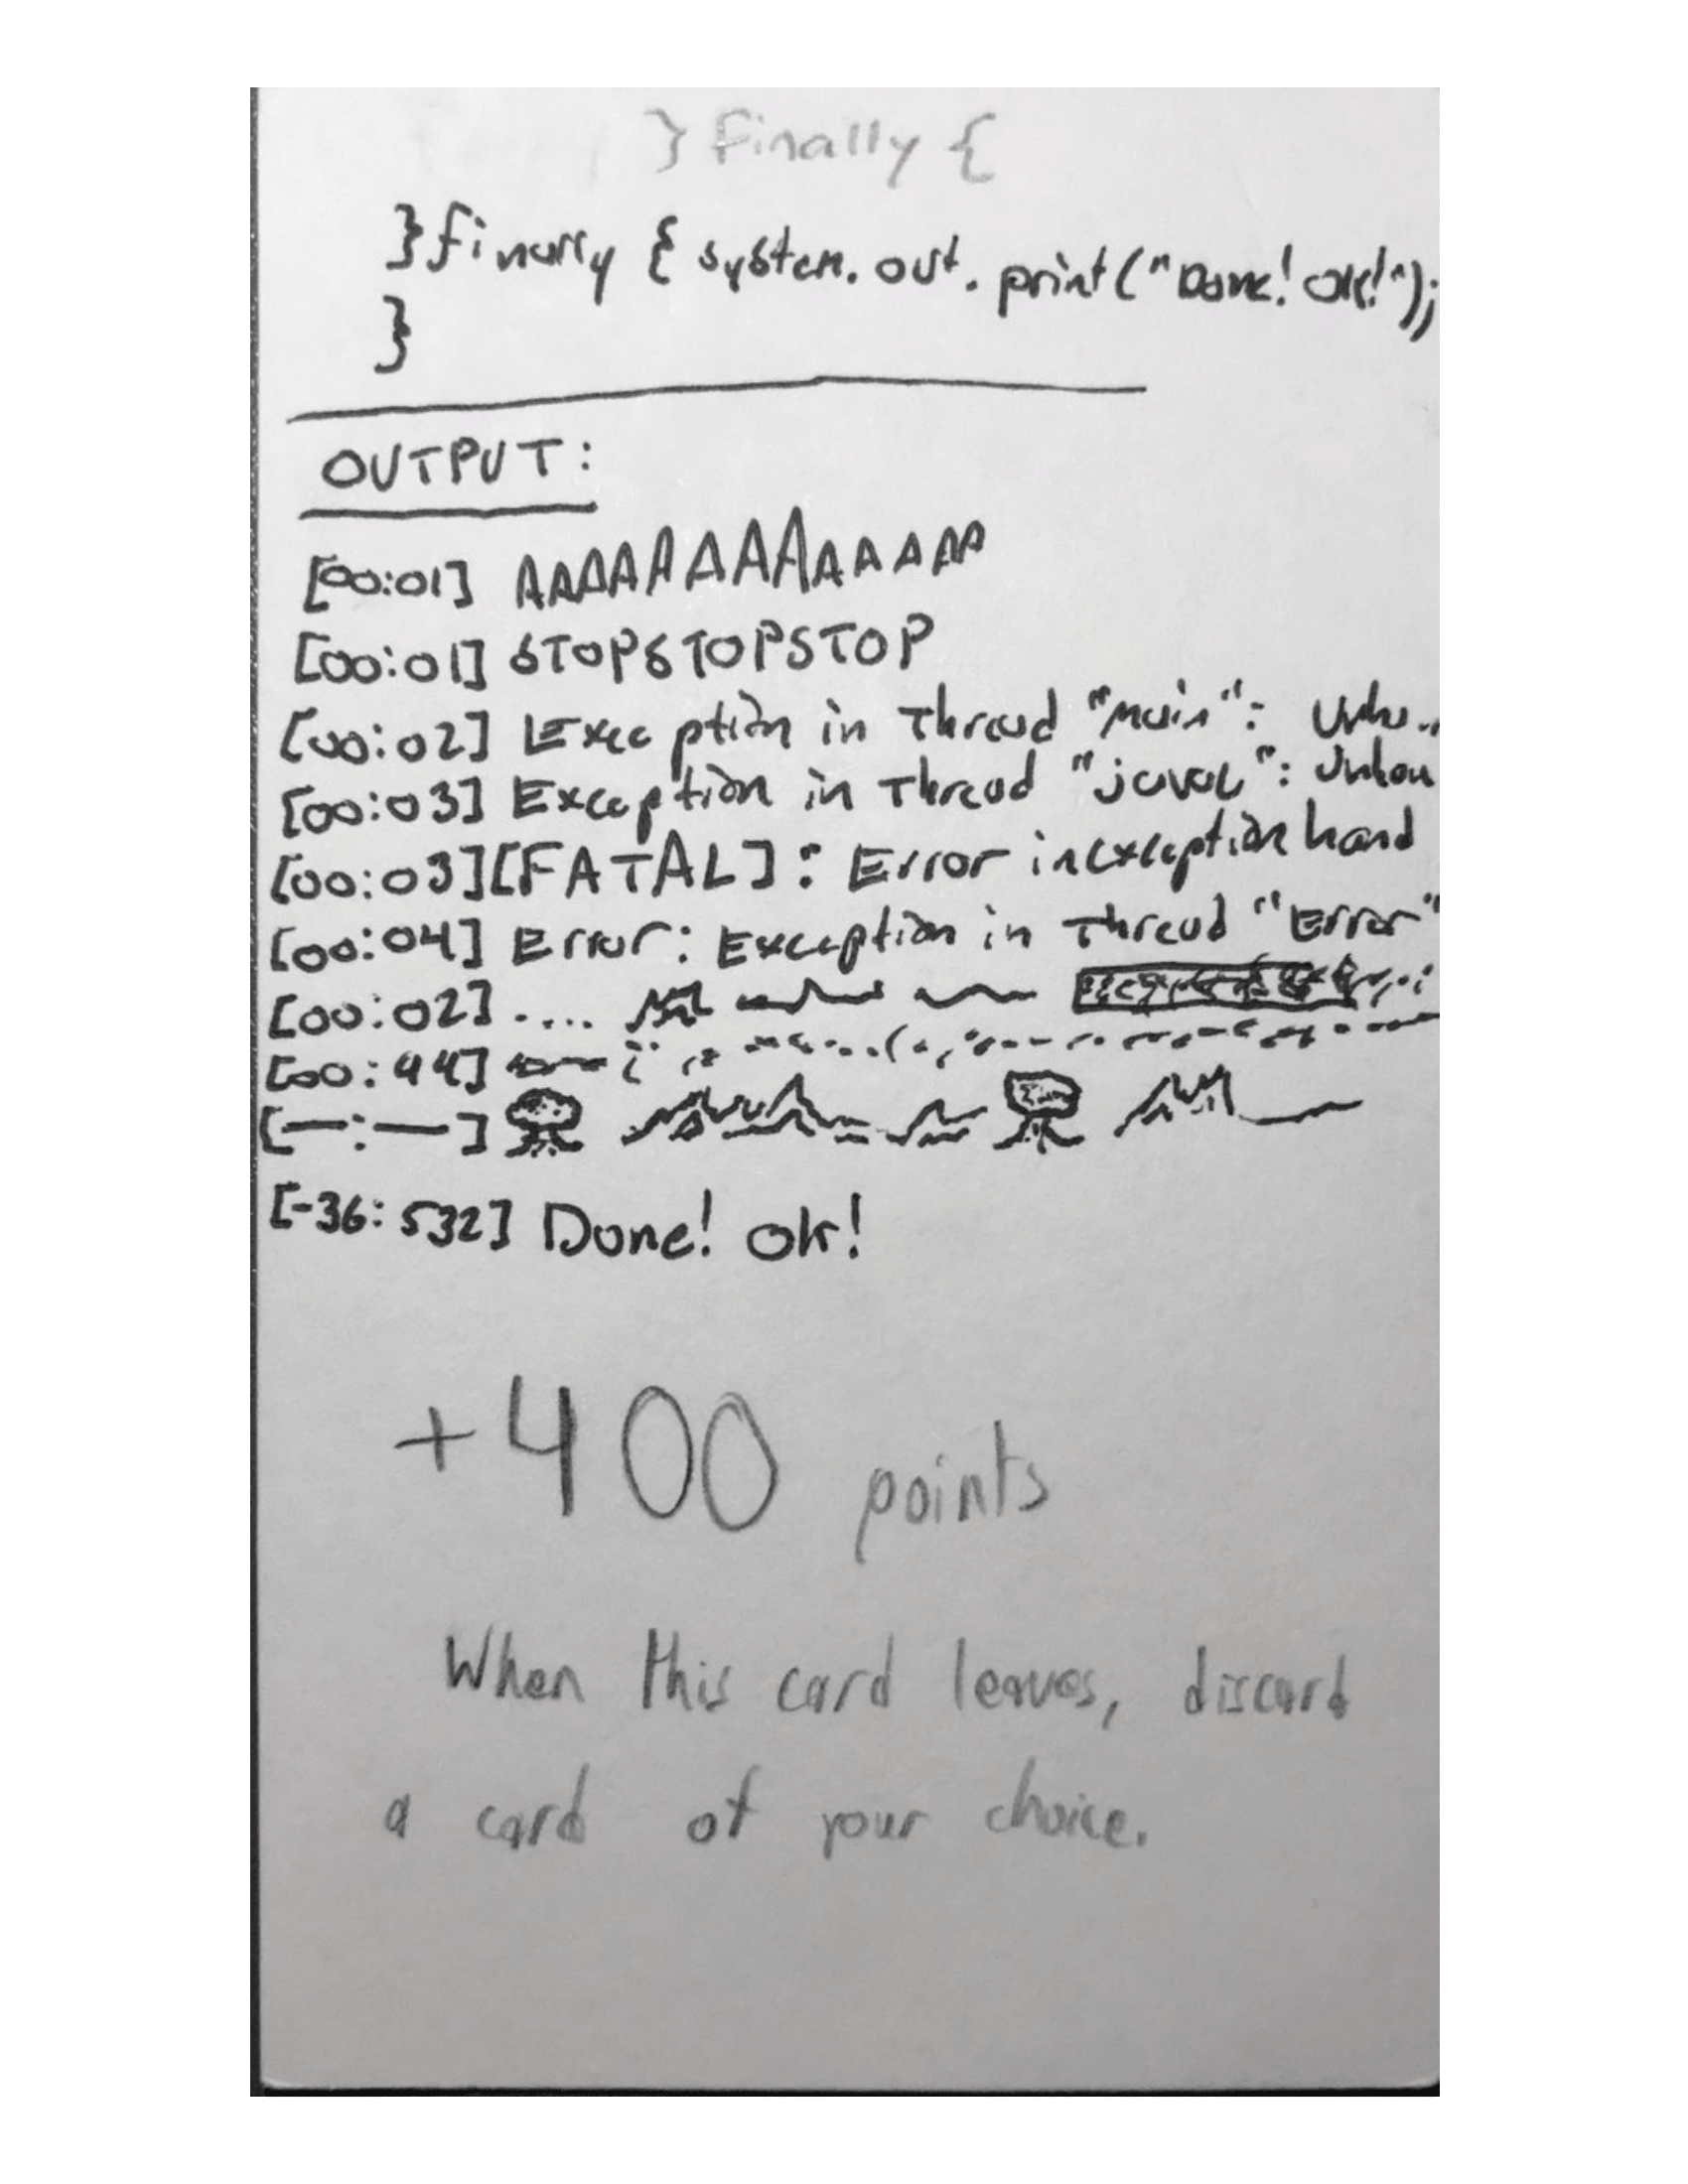 } finally {
}finally { system.out.print("Done! ok!");
}
OUTPUT:
[00:01] AAAAAAAAAAAAAA
[00:01] STOPSTOPSTOP
[00:02] Exception in Thread "main":
[00:03] Exception in Thread "java": Unhan
[00:03][FATAL]: Error in exception hand
[00:04] Error: Exception in Thread "Error"
[00:02] ....
[00:44]
[—:—]
[-36:532] Done! ok!
+400 points
When this card leaves, discard
a card of your choice.